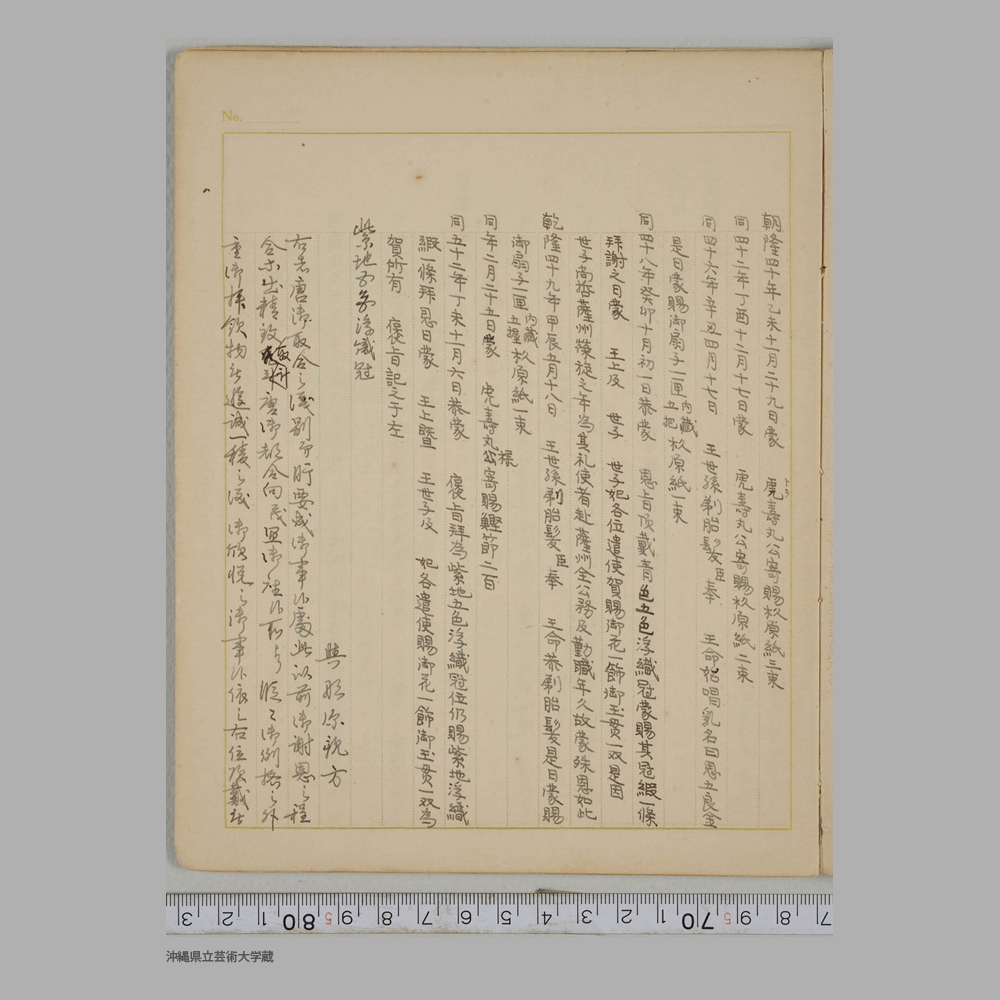 No.
朝隆四十年乙未十一月二十九日蒙 虎寿丸公寄賜杦原紙三束
トラ
同四十二年丁酉十二月十七日蒙 虎壽丸公寄賜杦原紙二束
同四十六年辛丑四月十七日 王世孫剃胎髪臣奉 王命始唱乳名曰思五良金
是日蒙賜御扇子一匣内蔵五把杦原紙一束
同四十八年癸卯十月初一日恭蒙 恩旨頂戴青色五色浮織冠蒙賜其冠緞一條
拜謝之日蒙 王上及 世子 世子妃各位遣使賀賜御花一飾御玉貫一双是因
世子尚哲薩州榮旋之年為其礼使者赴薩州全公務及勤職年久故蒙殊恩如此
乾隆四十九年甲辰五月十八日 王世孫剃胎髮臣奉 王命恭剃胎髮是日蒙賜
御扇子一匣内蔵五握杦原紙一束
同年二月二十五日蒙 虎壽丸公様寄賜鰹節二百
同五十二年丁未十一月六日恭蒙 褒旨拜為紫地五色浮織冠位仍賜紫地浮織
緞一條拜恩日蒙 王上暨 王世子及 妃各遣使賜御花一飾御玉貫一双為
賀所有 褒旨記之于左
紫地五色浮織冠
與那原親方
右者唐御取合之儀別而肝要成御事候處此以前御謝恩之程
念出精致 唐御都合向茂宜御座候
重御拝領物者 誠一稜之儀 御欣悦之御事候依之右位頂戴